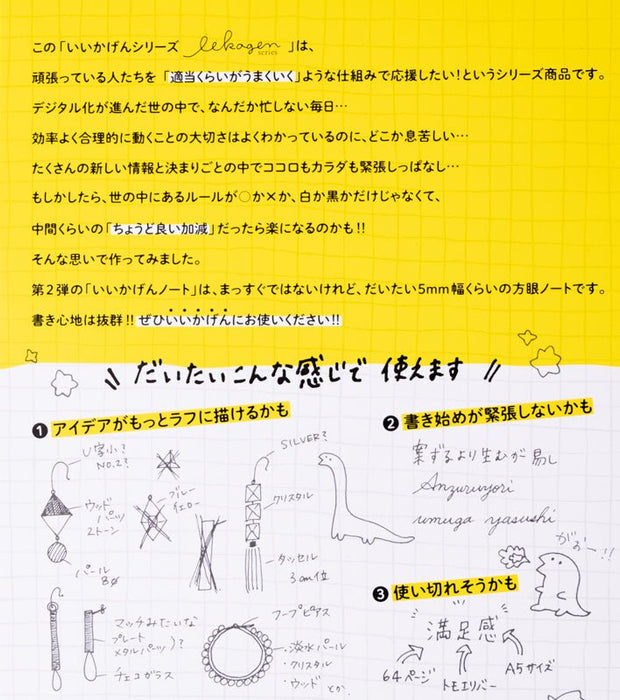 この「いいかげんシリーズ iikagen series 」は、
頑張っている人たちを「適当くらいがうまくいく」ような仕組みで応援したい！というシリーズ商品です。
デジタル化が進んだ世の中で、なんだか忙しない毎日…
効率よく合理的に動くことの大切さはよくわかっているのに、どこか息苦しい…
たくさんの新しい情報と決まりごとの中でココロもカラダも緊張しっぱなし…
もしかしたら、世の中にあるルールが○か×か、白か黒かだけじゃなくて、
中間くらいの「ちょうど良い加減」だったら楽になるのかも!!
そんな思いで作ってみました。
第2弾の「いいかげんノート」は、まっすぐではないけれど、だいたい5mm幅くらいの方眼ノートです。
書き心地は抜群!! ぜひいいかげんにお使いください!!
だいたいこんな感じで 使えます
❶ アイデアがもっとラフに描けるかも
U字小?
NO.2?
ウッド
パーツ
2トーン
パール
8φ
ブルー
イエロー
SILVER?
クリスタル
タッセル
3cm位
マッチみたいな
プレート
メタルパーツ)?
チェコガラス
フープピアス
淡水パール
・クリスタル
・ウッド とか
❷ 書き始めが緊張しないかも
案ずるより生むが易し
Anzuruyori
umuga yasushi
がおー!!
❸ 使い切れそうかも
満足感
64ページ
トモエリバー
A5サイズ